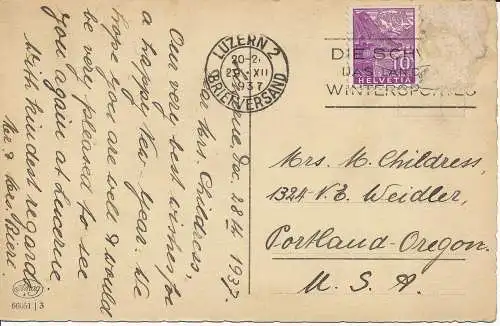 LUZERN 2
20-2
29. XII
1937
BRIEFVERSAND
DIE SCH
DAS
WINTERSPORTES
10
HELVETIA
Dec. 28th 1937.
Mrs. Childress,
Our very best wishes for
a happy New-year. We
hope you are well & would
be very pleased to see
you again at Lucerne.
With kindest regards
Mr. & Mrs. Bieri.
Mrs. M. Childress,
1324 N.E. Weidler,
Portland-Oregon.
U. S. A.
66051 | 3